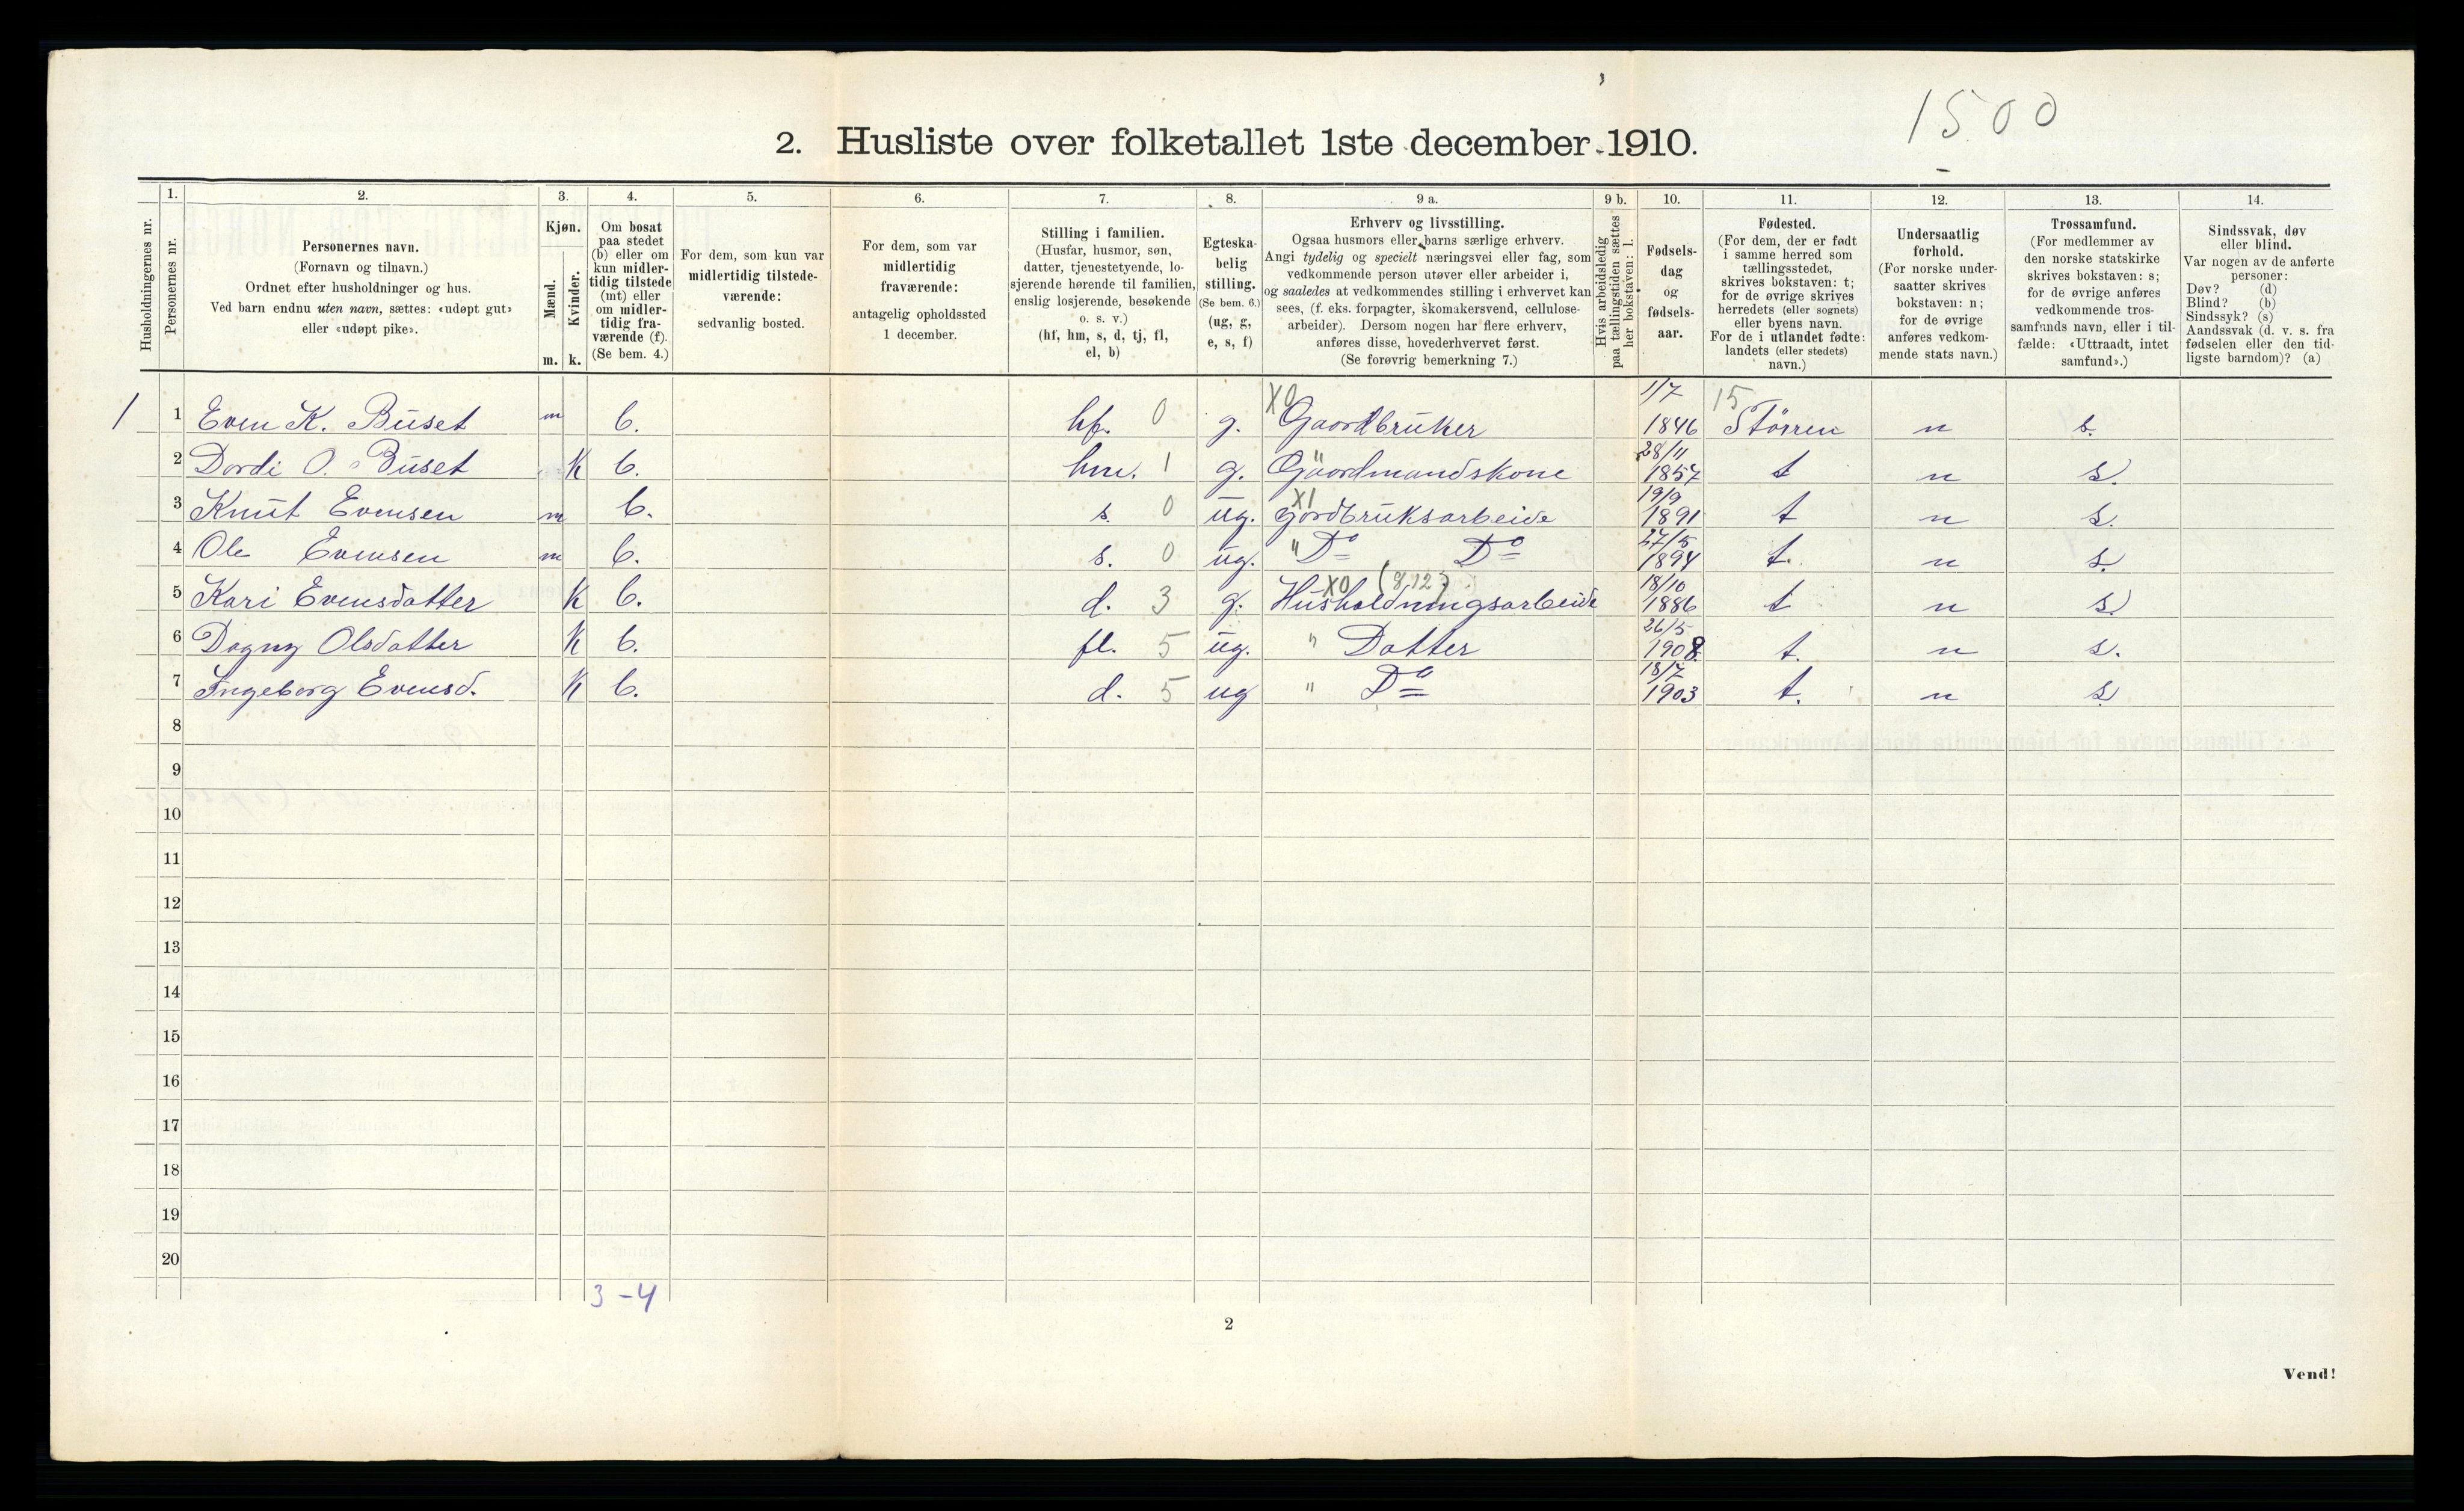 1500
2. Husliste over folketallet 1ste december 1910.
Husholdningernes nr.
1.
Personernes nr.
2.
Personernes navn.
(Fornavn og tilnavn.)
Ordnet efter husholdninger og hus.
Ved barn endnu uten navn, sættes: «udøpt gut»
eller «udøpt pike».
3.
Kjøn.
Mænd.
Kvinder.
m. k.
4.
Om bosat
paa stedet
(b) eller om
kun midler-
tidig tilstede
(mt) eller
om midler-
tidig fra-
værende (f).
(Se bem. 4.)
5.
For dem, som kun var
midlertidig tilstede-
værende:
sedvanlig bosted.
6.
For dem, som var
midlertidig
fraværende:
antagelig opholdssted
1 december.
7.
Stilling i familien.
(Husfar, husmor, søn,
datter, tjenestetyende, lo-
sjerende hørende til familien,
enslig losjerende, besøkende
o. s. v.)
(hf, hm, s, d, tj, fl,
el, b)
8.
Egteska-
belig
stilling.
(Se bem. 6.)
(ug, g,
e, s, f)
9 a.
Erhverv og livsstilling.
Ogsaa husmors eller barns særlige erhverv.
Angi tydelig og specielt næringsvei eller fag, som
vedkommende person utøver eller arbeider i,
og saaledes at vedkommendes stilling i erhvervet kan
sees, (f. eks. forpagter, skomakersvend, cellulose-
arbeider). Dersom nogen har flere erhverv,
anføres disse, hovederhvervet først.
(Se forøvrig bemerkning 7.)
9 b.
Hvis arbeidsledig
paa tællingstiden sættes
her bokstaven: l.
10.
Fødsels-
dag
og
fødsels-
aar.
11.
Fødested.
(For dem, der er født
i samme herred som
tællingsstedet,
skrives bokstaven: t;
for de øvrige skrives
herredets (eller sognets)
eller byens navn.
For de i utlandet fødte:
landets (eller stedets)
navn.)
12.
Undersaatlig
forhold.
(For norske under-
saatter skrives
bokstaven: n;
for de øvrige
anføres vedkom-
mende stats navn.)
13.
Trossamfund.
(For medlemmer av
den norske statskirke
skrives bokstaven: s;
for de øvrige anføres
vedkommende tros-
samfunds navn, eller i til-
fælde: «Uttraadt, intet
samfund».)
14.
Sindssvak, døv
eller blind.
Var nogen av de anførte
personer:
Døv? (d)
Blind? (b)
Sindssyk? (s)
Aandssvak (d. v. s. fra
fødselen eller den tid-
ligste barndom)? (a)
1 1 Even K. Buset m b. hf. 0 g. X0 Gaardbruker 1/7 1846 15 Støren n s.
2 Dordi O. Buset K b. hm. 1 g. " Gaardmandskone 28/11 1857 t n s.
3 Knut Evensen m b. s. 0 ug. X1 gordbruksarbeide 19/9 1891 t n s.
4 Ole Evensen m b. s. 0 ug. " Do Do 27/5 1894 t. n s.
5 Kari Evensdatter K b. d. 3 g. X0 (8,12) Husholdningsarbeide 18/10 1886 t n s
6 Dagny Olsdatter K b. fl. 5 ug. " Datter 26/5 1908. t. n s.
7 Ingeborg Evensd. K b. d. 5 ug " Do 18/7 1903 t. n s.
8
9
10
11
12
13
14
15
16
17
18
19
20
3-4
2
Vend!